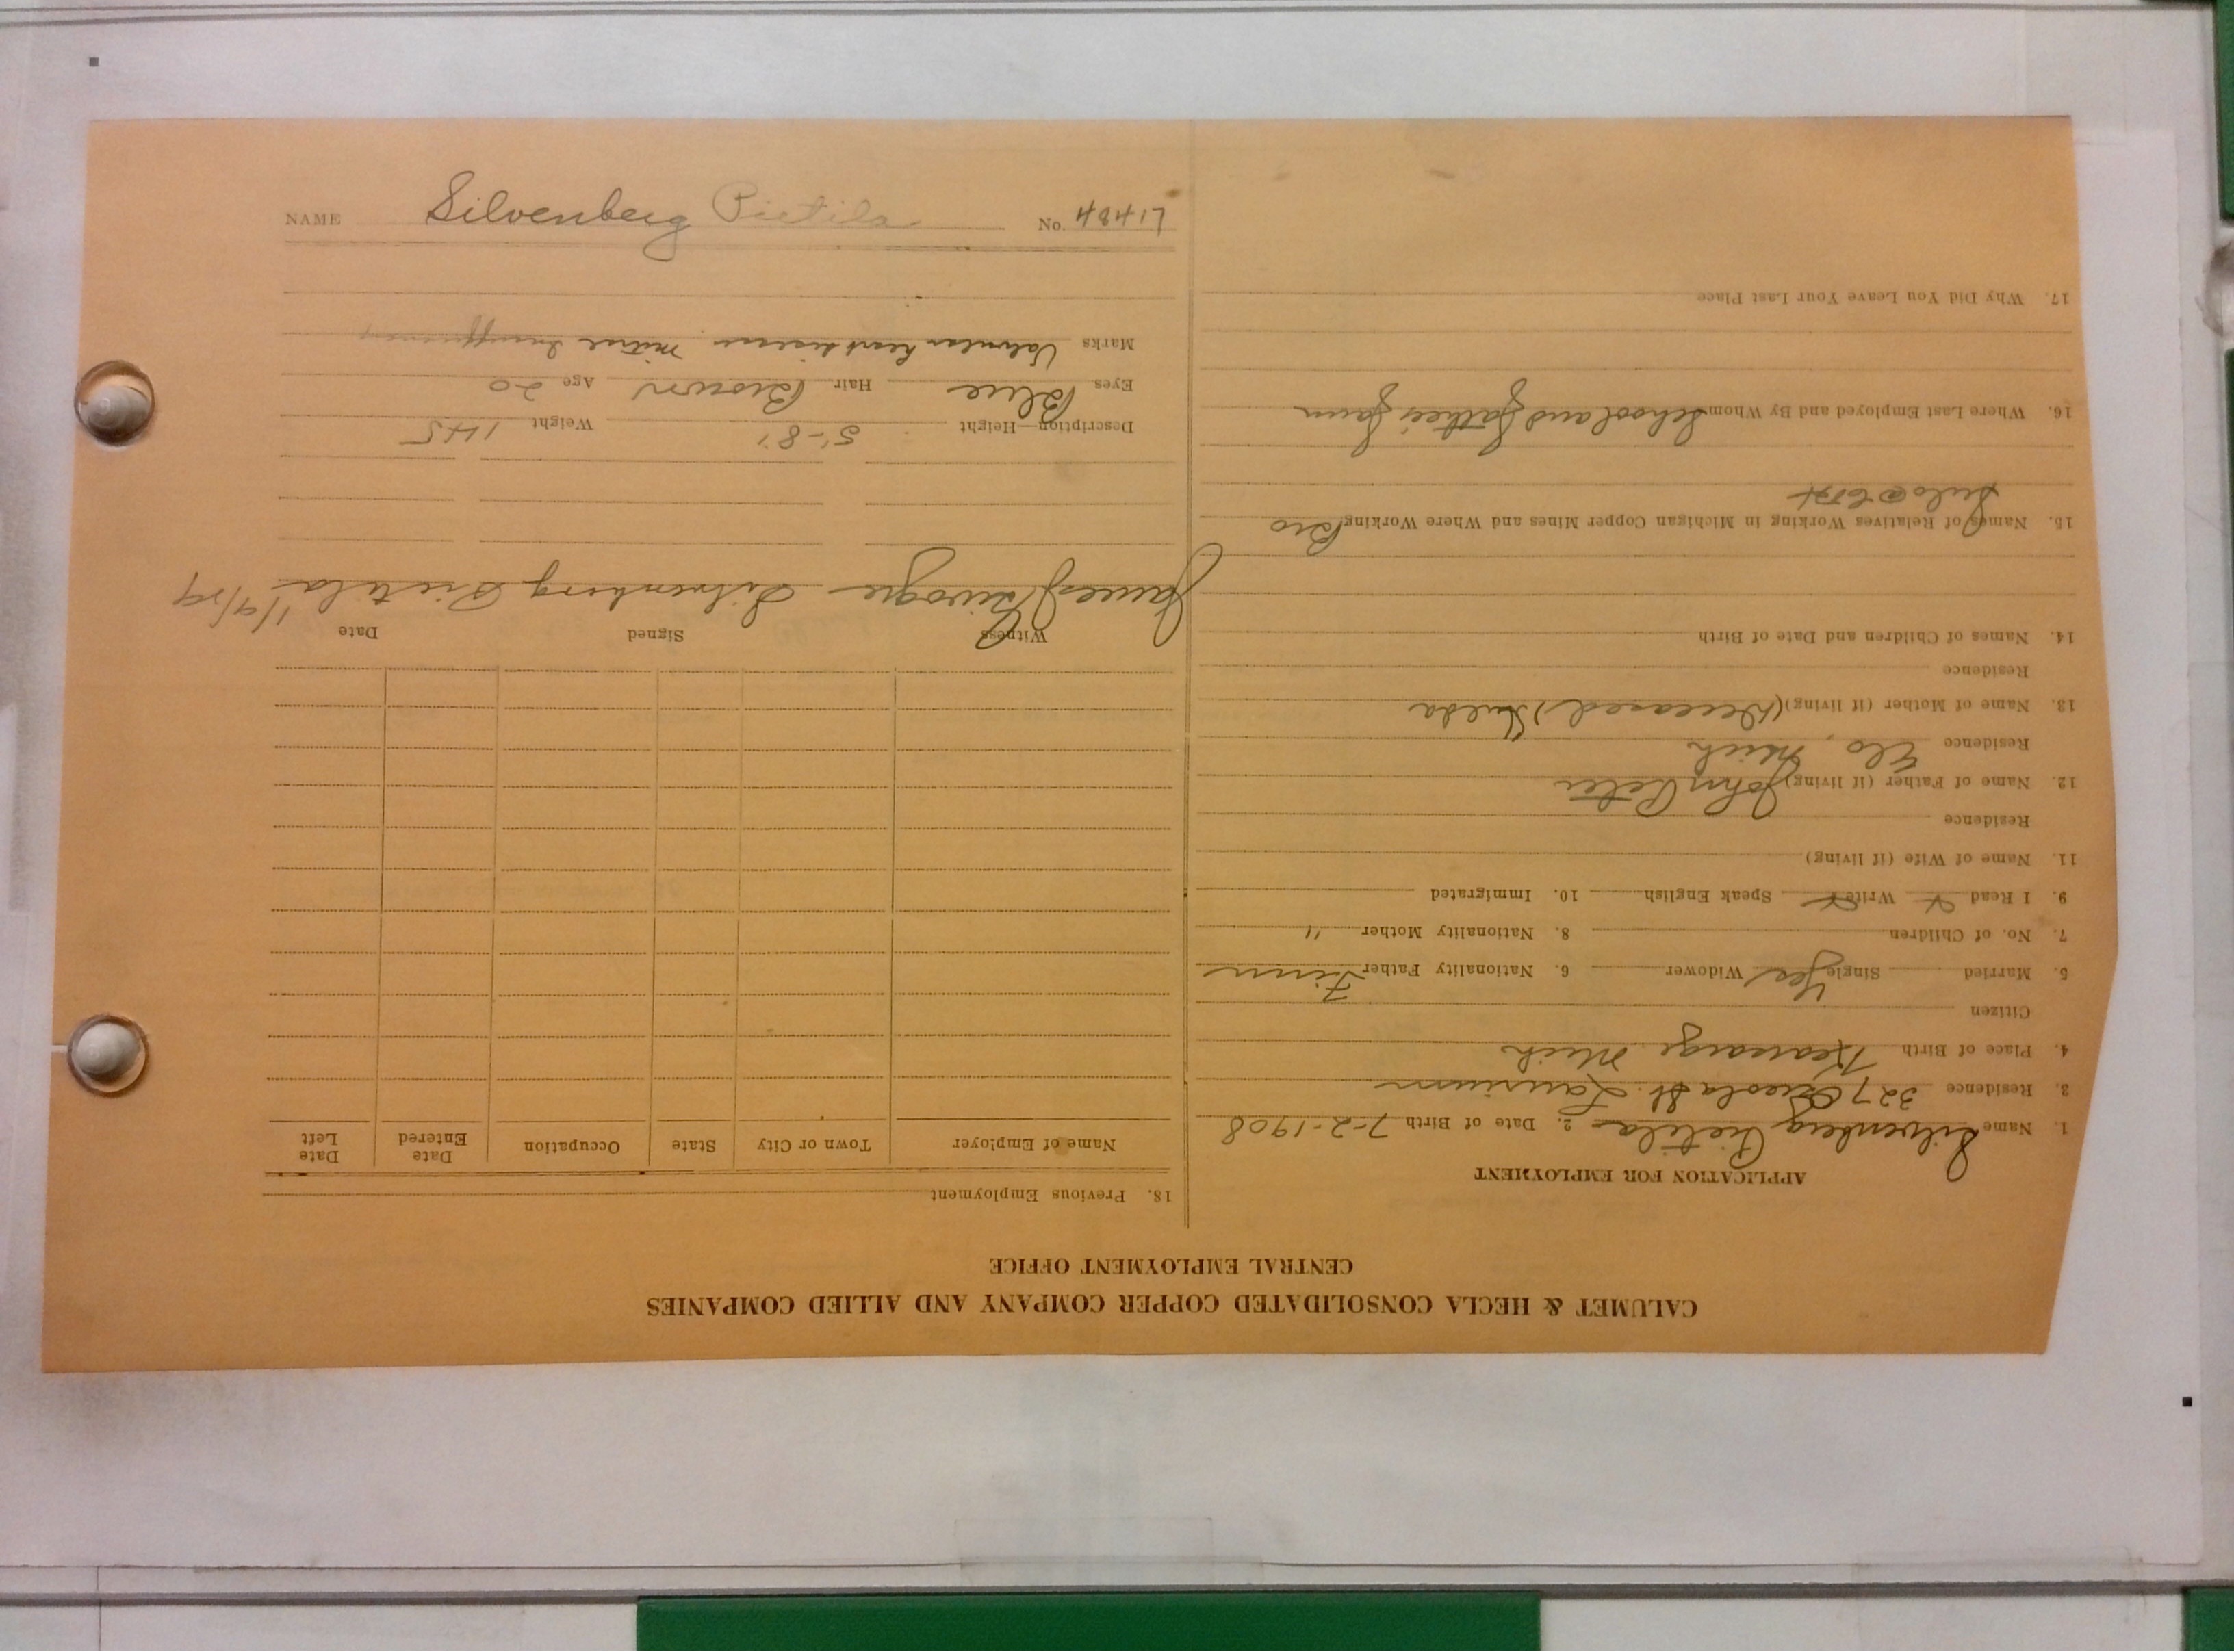 NAME Silvenberg Pietila No. 48417
CALUMET & HECLA CONSOLIDATED COPPER COMPANY AND ALLIED COMPANIES
CENTRAL EMPLOYMENT OFFICE
APPLICATION FOR EMPLOYMENT
1. Name Silvenberg Pietila 2. Date of Birth 7-2-1908
3. Residence 327 Osceola St. Laurium
4. Place of Birth Kearsarge Mich
Citizen
5. Married Single Yes Widower 6. Nationality Father Finn
7. No. of Children 8. Nationality Mother "
9. I Read x Write x Speak English 10. Immigrated
11. Name of Wife (if living)
Residence
12. Name of Father (if living) John Peter
Residence Elo, Mich
13. Name of Mother (if living) (Deceased) Hulda
Residence
14. Names of Children and Date of Birth
15. Names of Relatives Working in Michigan Copper Mines and Where Working Bro
Sulo @
16. Where Last Employed and By Whom School and father's farm
17. Why Did You Leave Your Last Place
18. Previous Employment
Name of Employer Town or City State Occupation Date Entered Date Left
Witness Signed Date
James Silvenberg Pietila 1/9/29
Description—Height 5'-8" Weight 145
Eyes Blue Hair Brown Age 20
Marks Valvular heart disease mitral insufficiency